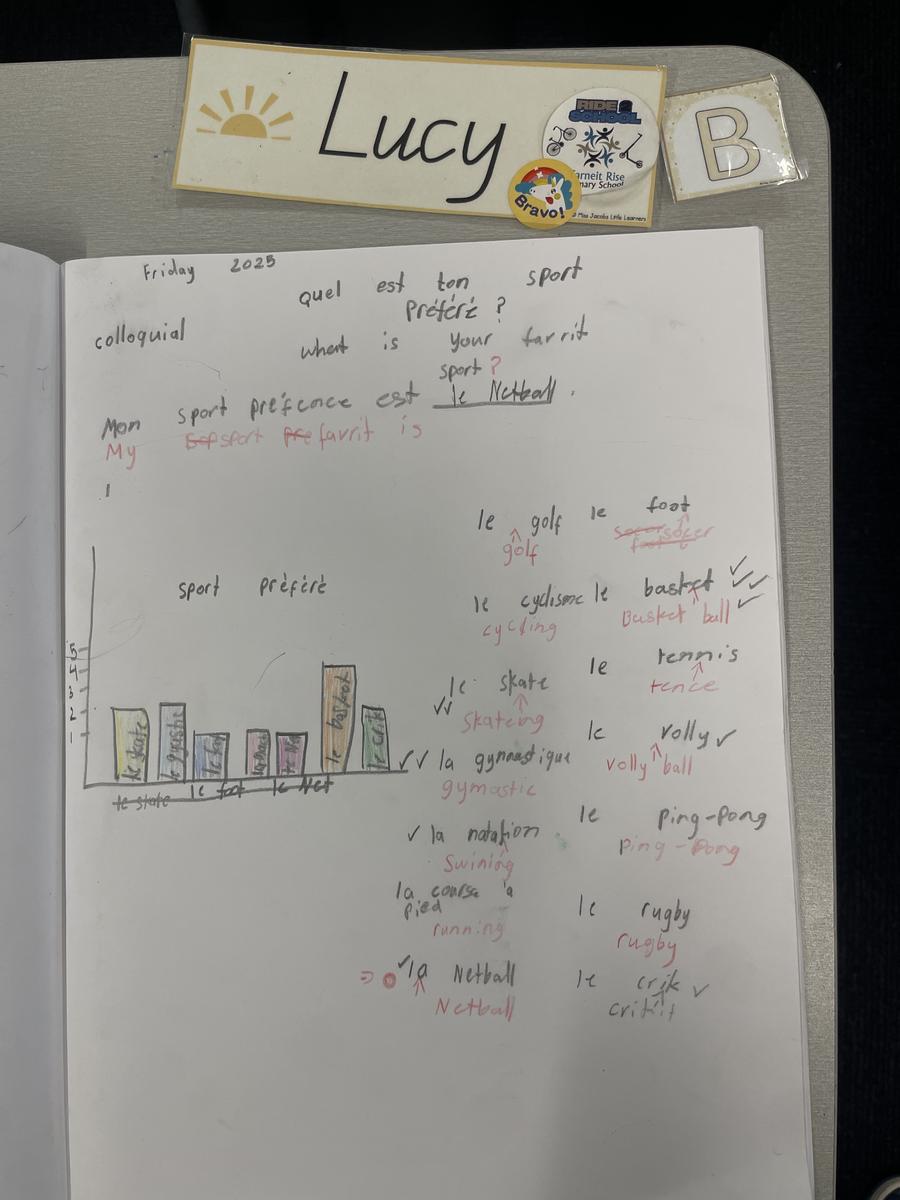 Lucy
RIDE 2
SCHOOL
arneit Rise
mary School
Bravo!
Miss Jacobs Little Learners
B
Friday 2025
quel est ton sport
préféré ?
colloquial
what is your farrit
sport ?
Mon sport préfence est le Netball .
My sport favrit is
sport préféré
5
4
3
2
1
le skate
le gynastic
le foot
le Net
le basket
le crik
le skate le foot le Net
le golf
golf
le foot
soccer socer
le cyclisme
cycling
le basket
Basket ball
le skate
skateing
le tennis
tence
la gymnastique
gymastic
le volly
volly ball
la natation
Swining
le ping-pong
ping-pong
la course 'a
pied
running
le rugby
rugby
la Netball
Netball
le crik